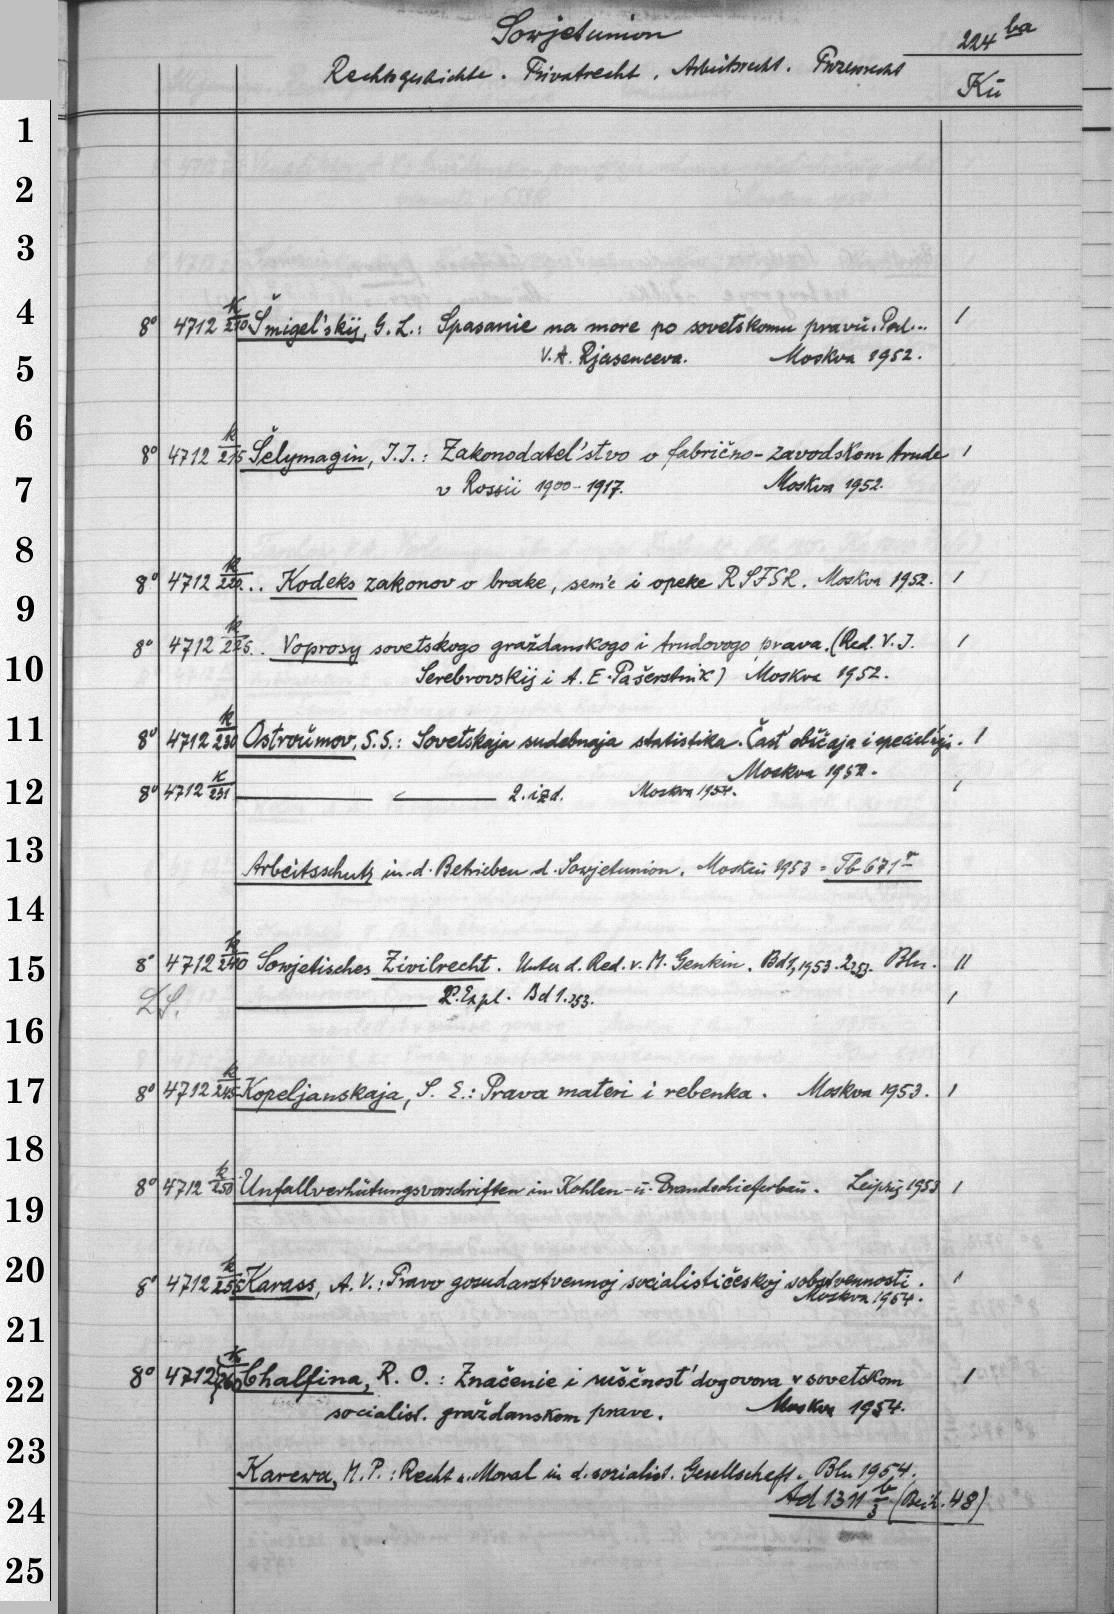 Sowjetunion
224 ba
Rechtsgeschichte. Privatrecht. Arbeitsrecht. Prozessrecht
Kü
1
2
3
4 8° 4712 k/210 Šmigel'skij, G. L.: Spasanie na more po sovetskomu pravu. Pod... I
5 V. A. Rjasenceva. Moskva 1952.
6 8° 4712 k/215 Šelymagin, I. I.: Zakonodatel'stvo o fabrično-zavodskom trude I
7 v Rossii 1900-1917. Moskva 1952.
8 8° 4712 k/220 .. Kodeks zakonov o brake, sem'e i opeke RSFSR. Moskva 1952. I
9 8° 4712 k/225 .. Voprosy sovetskogo graždanskogo i trudovogo prava. (Red. V. I. I
10 Serebrovskij i A. E. Pašerstnik) Moskva 1952.
11 8° 4712 k/230 Ostroumov, S. S.: Sovetskaja sudebnaja statistika. Čast' obščaja i special'n. I
Moskva 1952.
12 8° 4712 k/231 2. izd. Moskva 1954. I
13 Arbeitsschutz in d. Betrieben d. Sowjetunion. Moskau 1953 = Tb 671 r
14
15 8° 4712 k/240 Sowjetisches Zivilrecht. Unter d. Red. v. M. Genkin. Bd 1, 1953. 2, 53. Bln. II
LS. 2. Expl. Bd 1. 53. I
16
17 8° 4712 k/245 Kopeljanskaja, S. E.: Prava materi i rebenka. Moskva 1953. I
18
19 8° 4712 k/250 Unfallverhütungsvorschriften im Kohlen- u. Brandschieferbau. Leipzig 1953 I
20 8° 4712 k/255 Karass, A. V.: Pravo gosudarstvennoj socialističeskoj sobstvennosti. I
Moskva 1954.
21
22 8° 4712 k/260 Chalfina, R. O.: Značenie i suščnost' dogovora v sovetskom I
socialist. graždanskom prave. Moskva 1954.
23 Karewa, M. P.: Recht u. Moral in d. sozialist. Gesellschaft. Bln 1954.
24 Ad 1311 b/3 (Beih. 48)
25